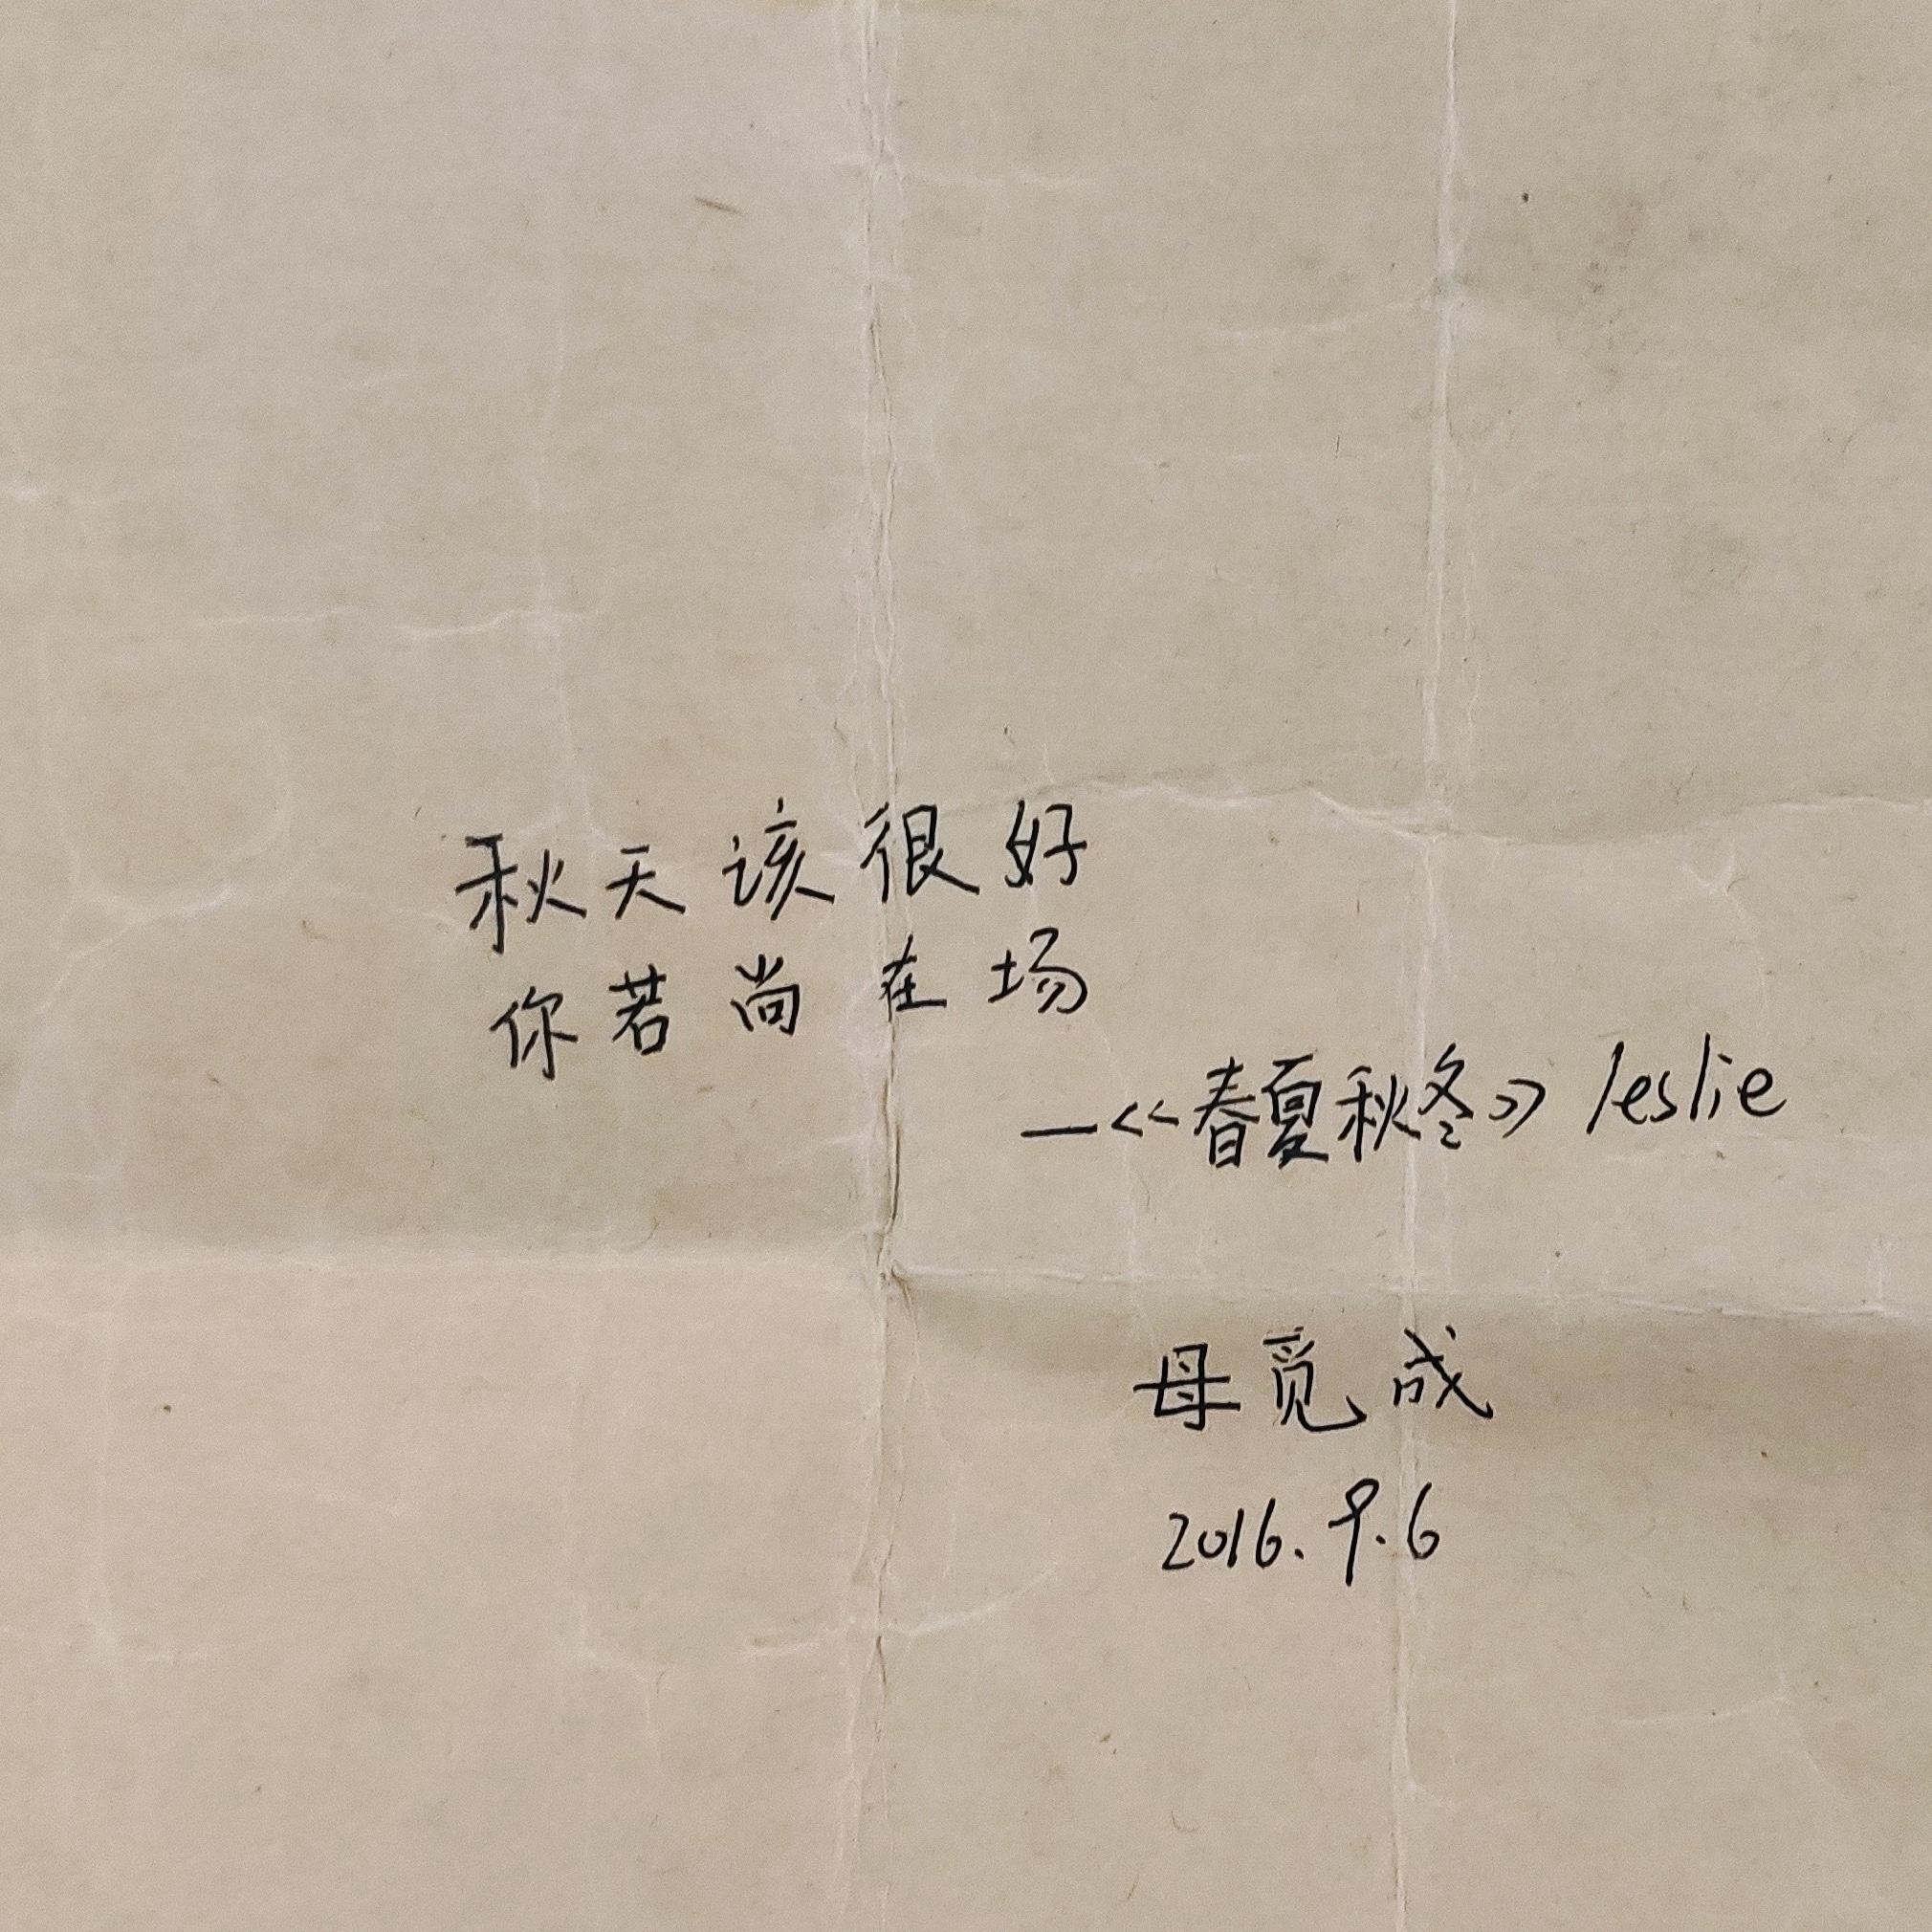 秋天该很好
你若尚在场
—<<春夏秋冬>> leslie
母觅成
2016.9.6